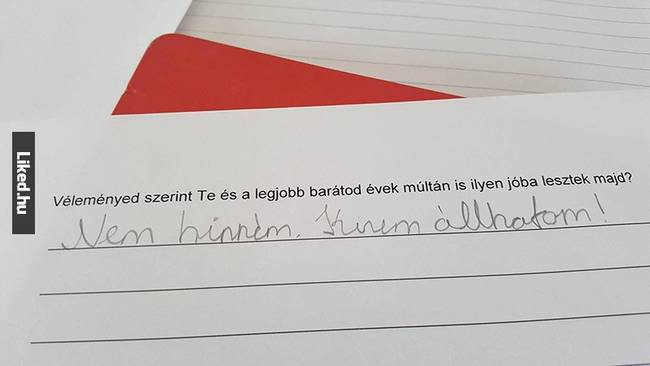 Liked.hu
Véleményed szerint Te és a legjobb barátod évek múltán is ilyen jóba lesztek majd?
Nem hinném. Ki nem állhatom!